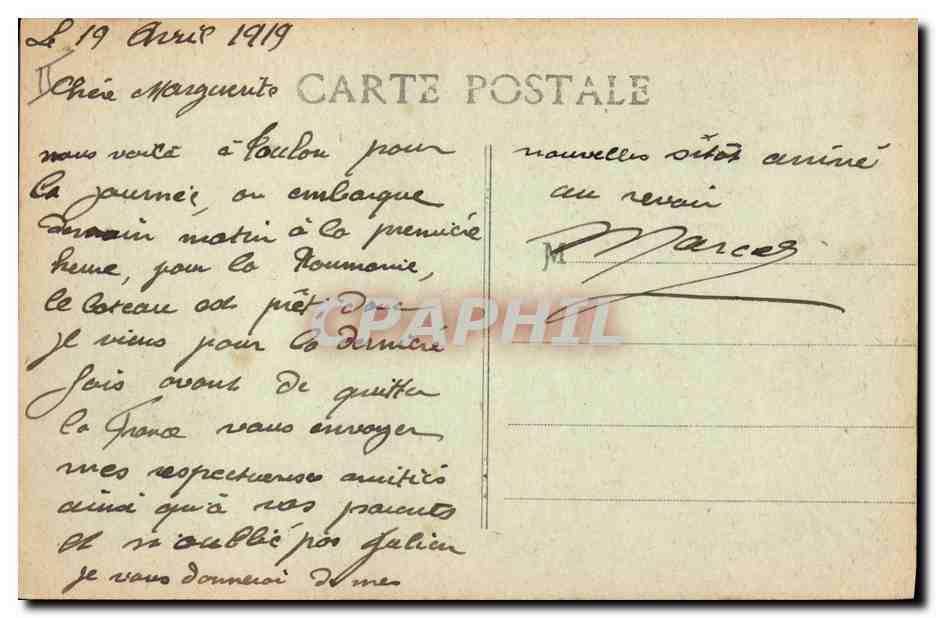 Le 19 Avril 1919
Chère Marguerite
CARTE POSTALE
nous voilà à Toulon pour
la journée, on embarque
demain matin à la première
heure, pour la Roumanie,
le bateau est prêt donc
je viens pour la dernière
fois avant de quitter
la France vous envoyer
mes respectueuses amitiés
ainsi qu'à vos parents
et n'oublie pas Julien
je vous donnerai de mes
nouvelles sitôt arrivé
au revoir
M
Marcel
CPAPHIL